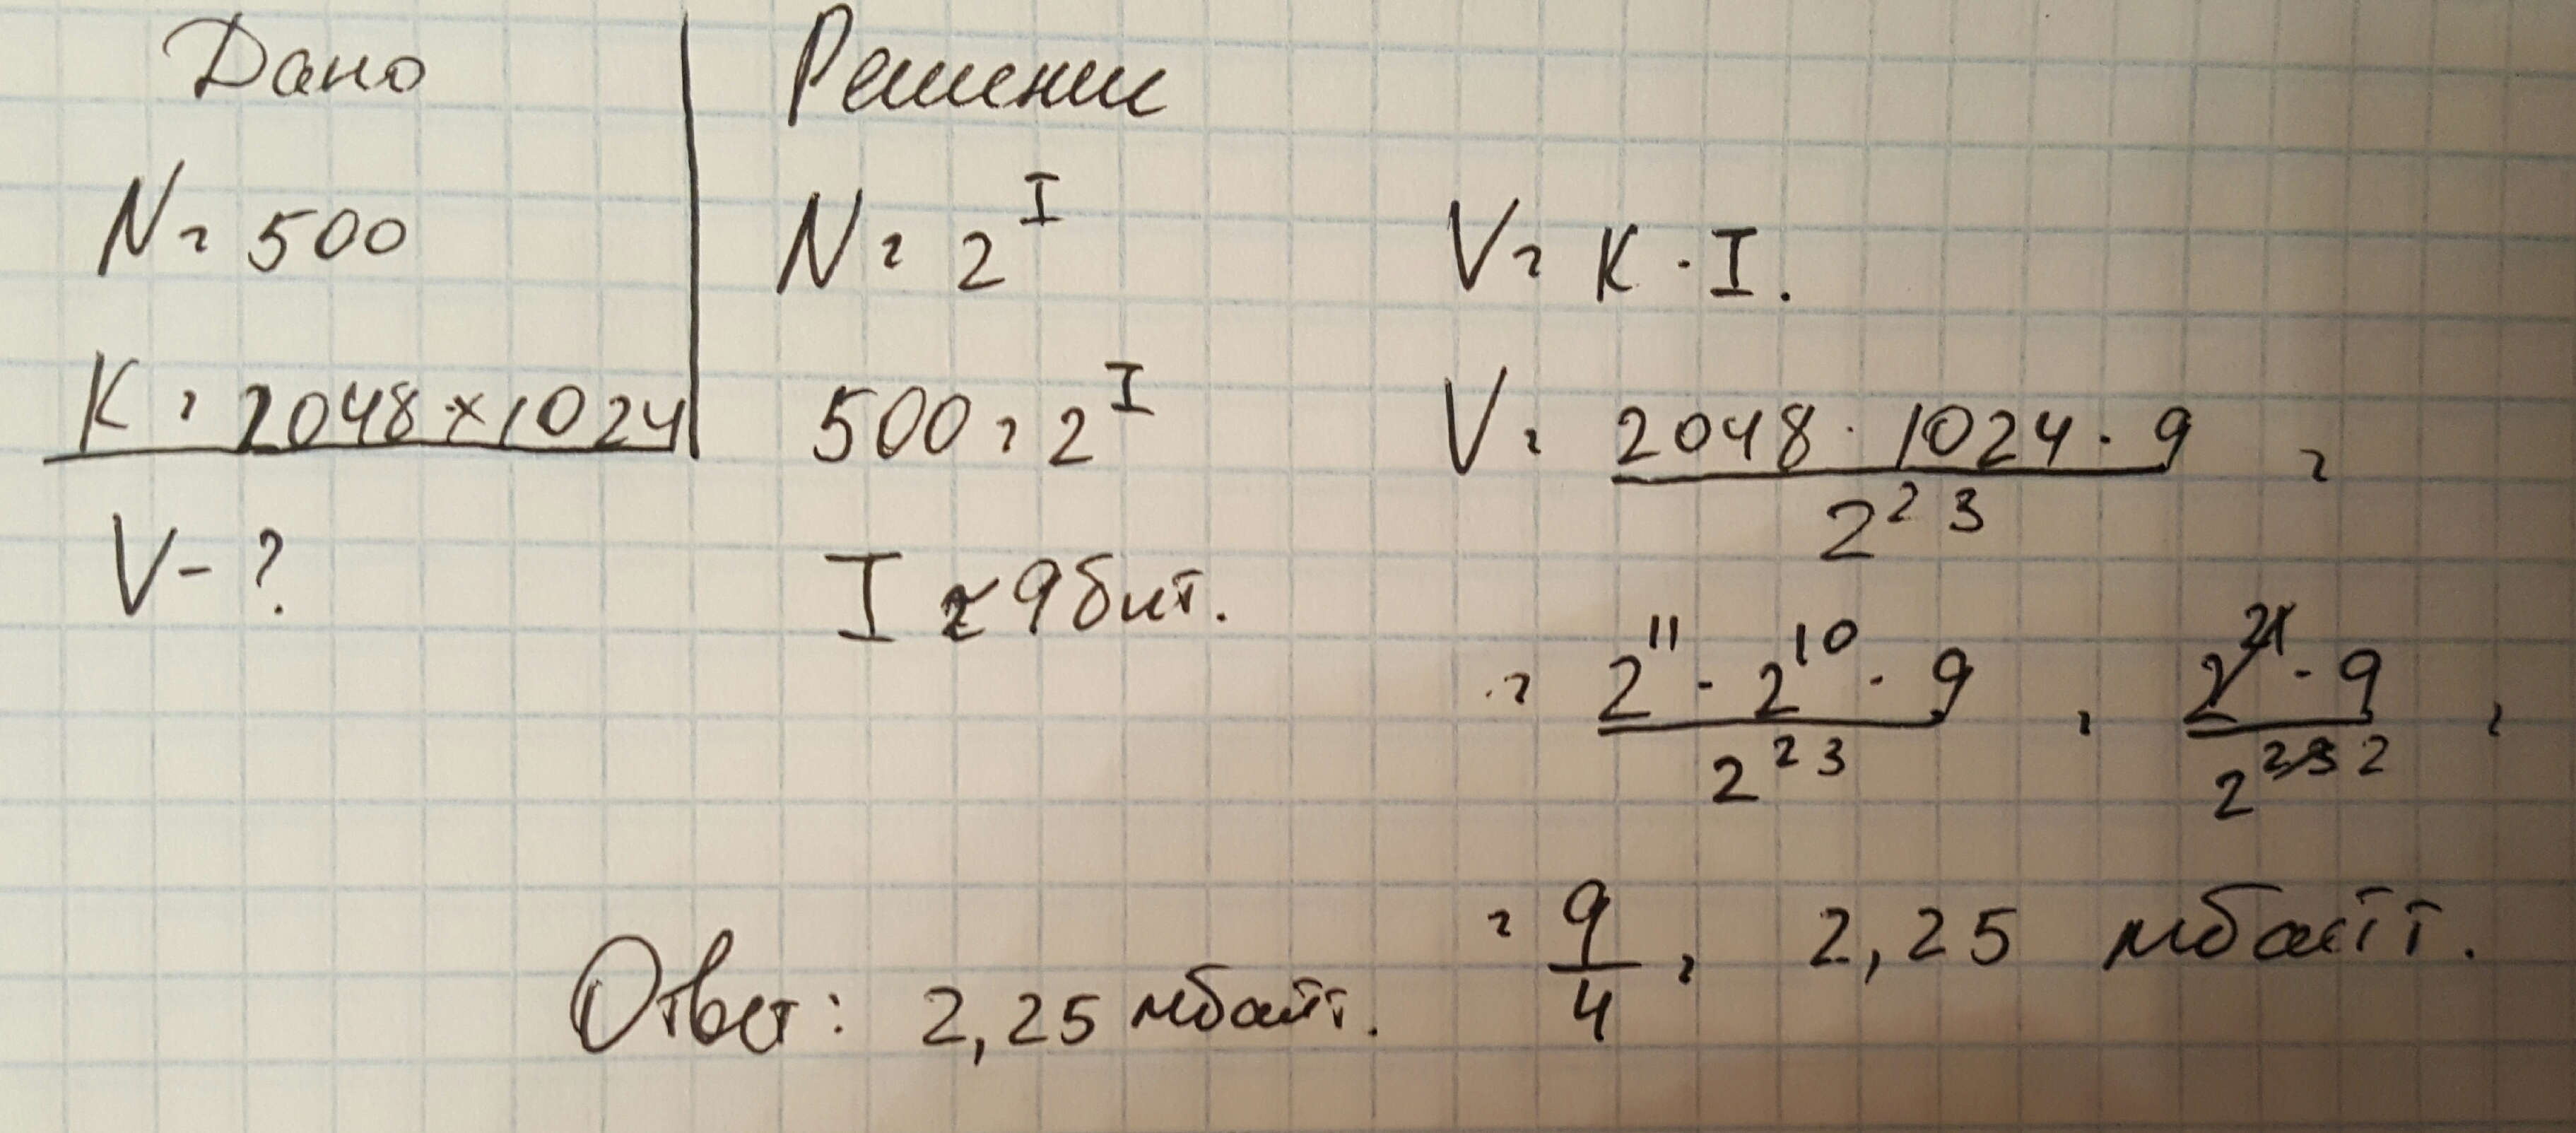 Дано
N = 500
K = 2048 × 1024
V - ?
Решение
N = 2^I
500 = 2^I
I ≈ 9 бит.
V = K · I.
V = 2048 · 1024 · 9 / 2^23 =
= 2^11 · 2^10 · 9 / 2^23 = 2^21 · 9 / 2^23 2 =
= 9/4 = 2,25 мбайт.
Ответ: 2,25 мбайт.